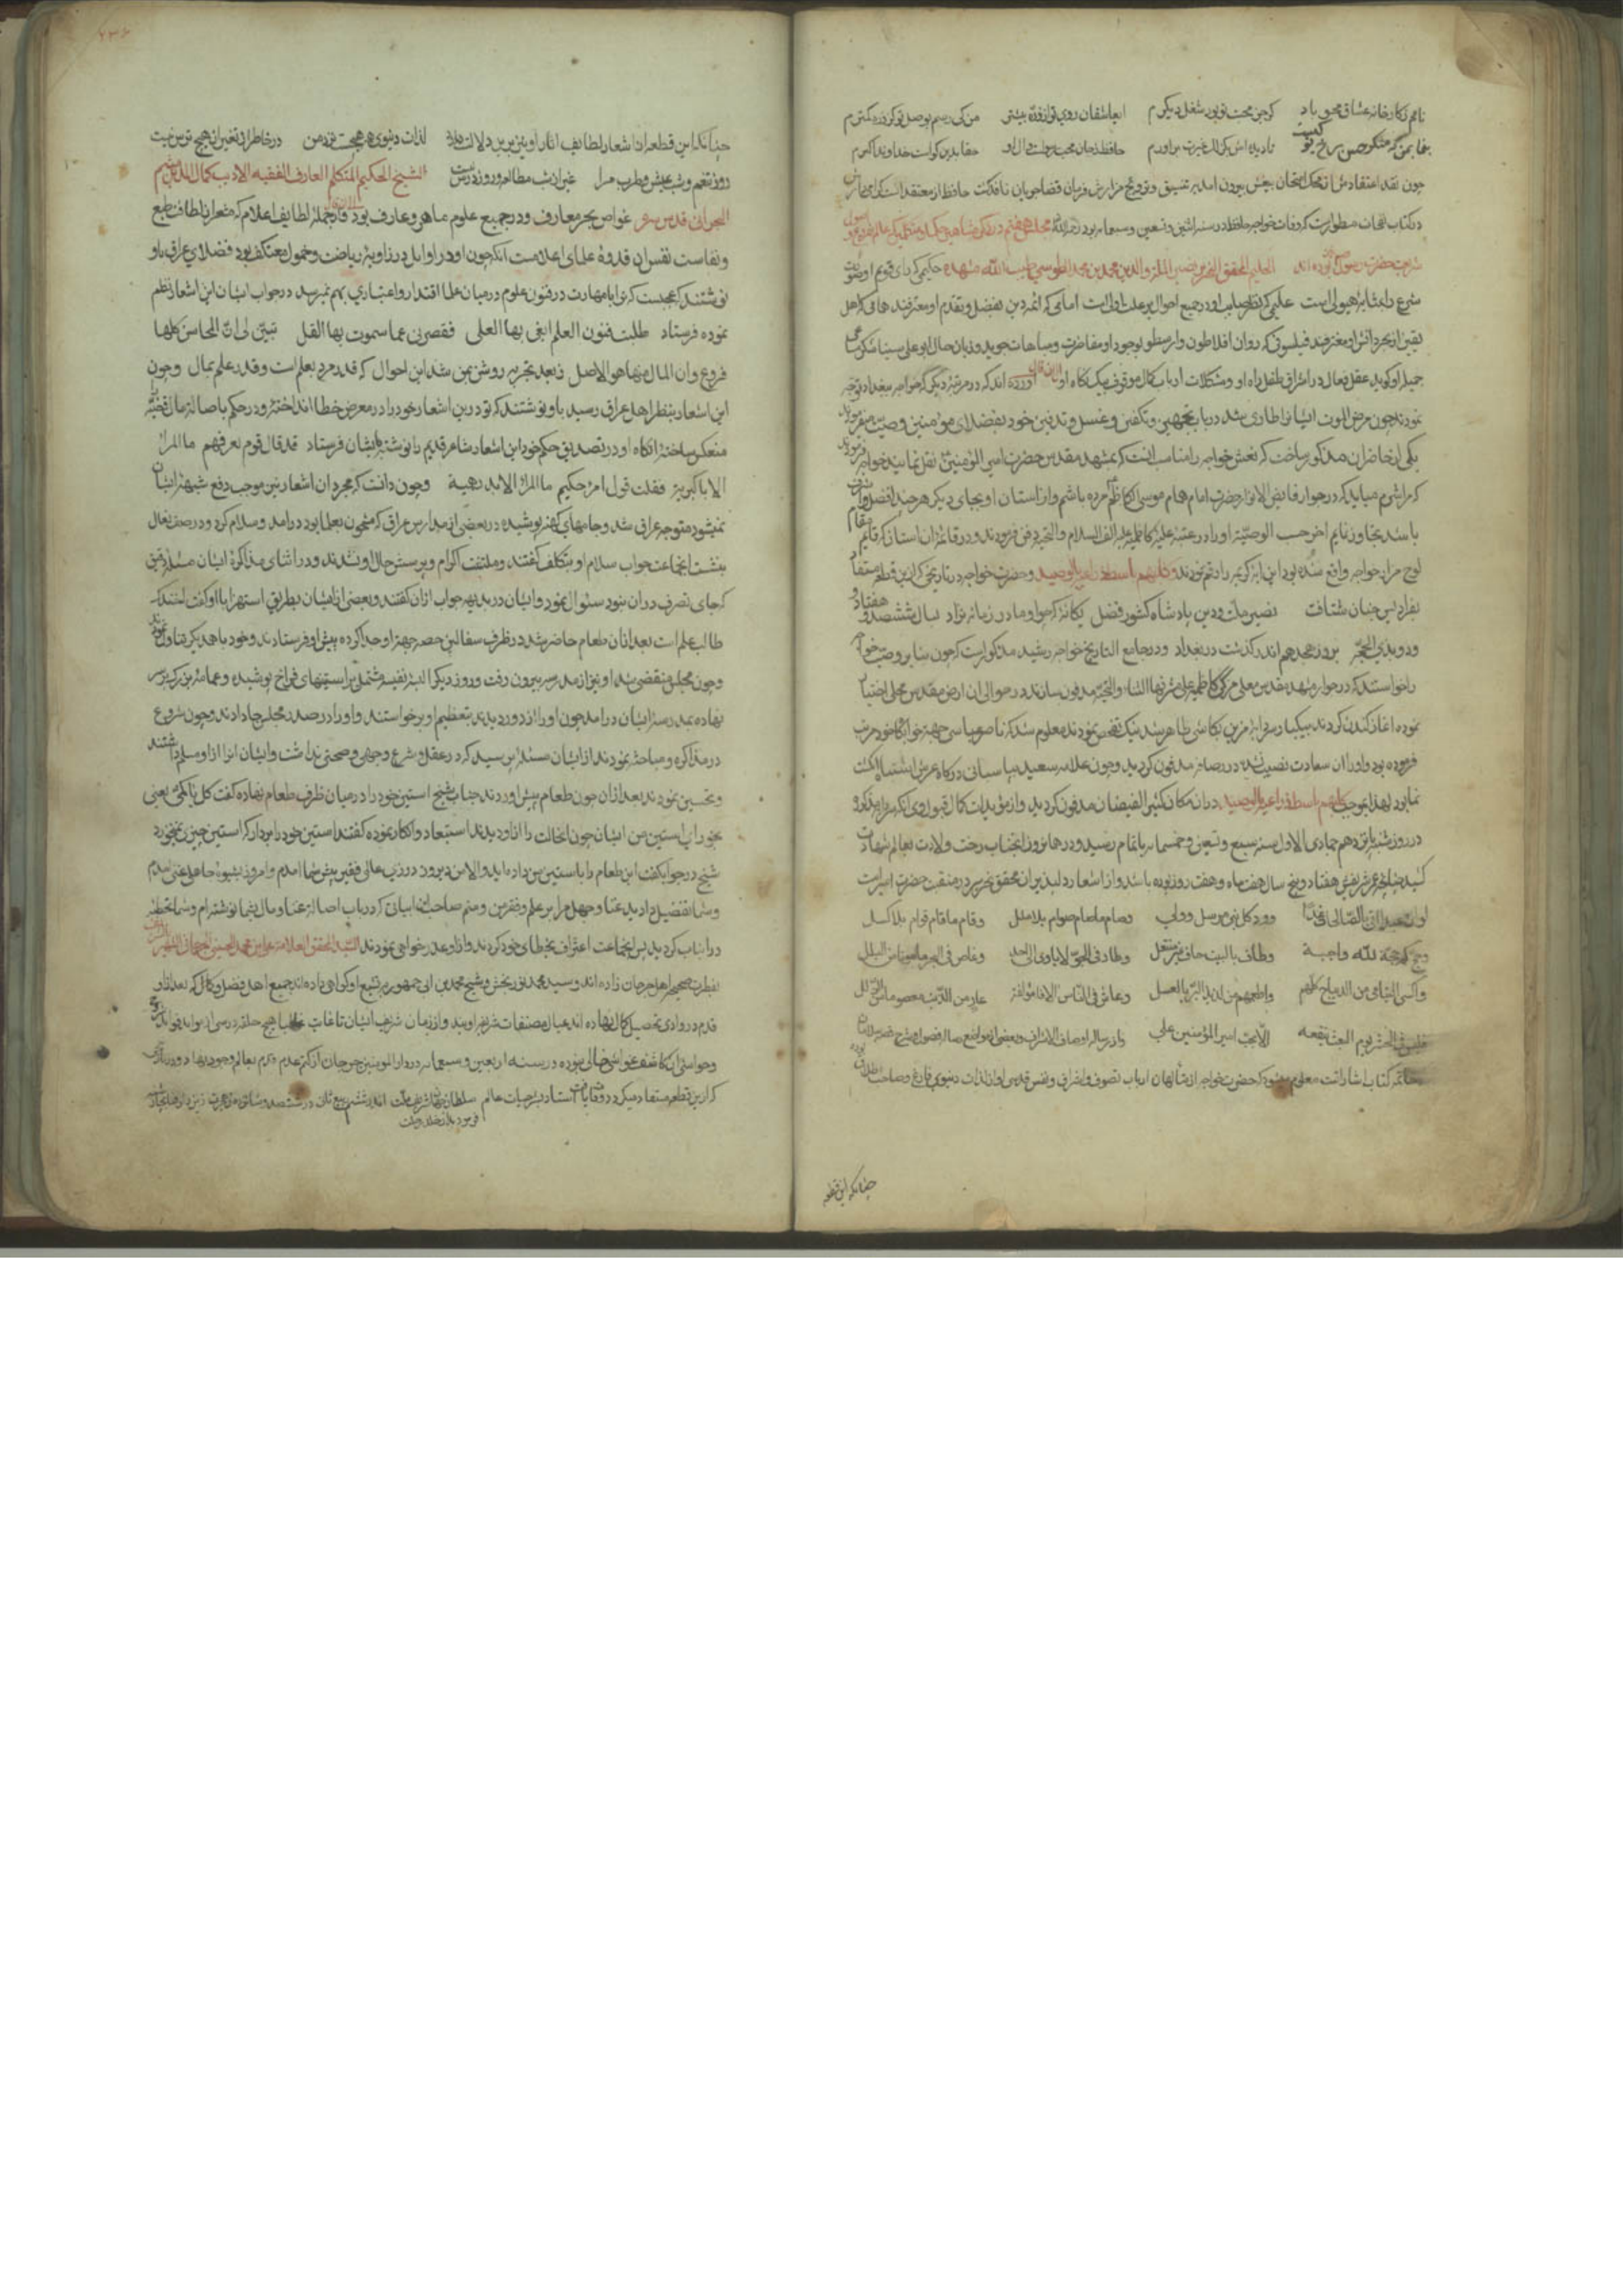 نامم زکارخانه عشاق محو باد گر جز محبت تو بود شغل دیگرم ای عاشقان روی تو از ذره بیشتر من کی رسم بوصل تو کز ذره کمترم
بنما بمن که منکر حسن رخ تو کیست تا دیده اش بگزلک غیرت براورم حافظ ز جان محب رسولست و ال او
چون نقد اعتقادش از محک امتحان بیغش بیرون امد
در کتاب نفحات مسطورست که وفات خواجه حافظ در سنه اثنین و تسعین و سبعمایه بود مجلس هفتم در ذکر مشاهیر حکما و متکلمین
شریعت حضرت رسول بوده اند الحکیم المحقق النحریر نصیر الملة والدین محمد بن محمد الطوسی طیب الله مشهده حکیمی که رای قویم او صورت
شرع را بمثابه هیولی است علیمی که نظر صایب او در جمیع احوال بر علت اولی است امامی که ائمه دین بفضل و تقدم او معترفند
فیلسوفی که روان افلاطون و ارسطو بوجود او مفاخرت و مباهات جوید و زبان حال ابو علی سینا شکر مساعی
جمیله او گوید عقل فعال در اشراق طفل راه او و مشکلات ارباب کمال موقوف یک نگاه او اورده اند که در مرتبه دیگر که خواجه ببغداد توجه
نمودند چون مرض الموت ایشانرا طاری شد در باب تجهیز و تکفین و غسل و تدفین خود بفضلای مومنین وصیت میفرمودند
یکی از حاضران مذکور ساخت که نعش خواجه را مناسب انست که بمشهد مقدس حضرت امیر المومنین نقل نمایند خواجه فرمودند
که مرا شرم میاید که در جوار فایض الانوار حضرت امام همام موسی کاظم مرده باشم و از استان او بجای دیگر هر چند افضل و اشرف
باشد تجاوز نمایم اخر حسب الوصیة او را در عتبه علیه کاظمیه علیه الف السلام والتحیة دفن فرمودند و در قایمه ان استان که قایم مقام
لوح مزار خواجه واقع شده بود این ایه کریمه را رقم نمودند وکلبهم باسط ذراعیه بالوصید و حضرت خواجه در تاریخی که ازین قطعه مستفاد
بفرادیس جنان شتافت نصیر ملت و دین پادشاه کشور فضل یگانه که چو او مادر زمانه نزاد بسال ششصد و هفتاد
و دو بذی الحجه بروز هجدهم اندر گذشت در بغداد و در جامع التاریخ خواجه رشید مذکورست که چون بنا بر وصیت خواجه
را خواستند که در جوار مشهد مقدس معلی مزکی کاظمیه علی مشرفها الثناء والتحیة مدفون سازند در حوالی ان ارض مقدس محلی اختیار
نموده اغاز کندن کردند بیکبار سردابه مزین بکاشی ظاهر شد نیک تفحص نمودند معلوم شد که ناصر عباسی جهة خوابگاه خود مرتب
فرموده بود و او را ان سعادت نصیب نشد در رصافه مدفون گردید
نماید لهذا بموجب کلبهم باسط ذراعیه بالوصید در انمکان کثیر الفیضان مدفون گردید و از موبدات کمال قبول وی انکه سردابه مذکور
در روز شنبه یازدهم جمادی الاول سنه سبع و تسعین و خمسمایه باتمام رسید و در همانروز انجناب رخت ولادت بعالم شهادت
کشید عمر شریفش هفتاد و پنج سال و هفت ماه و هفت روز بوده باشد و از اشعار دلپذیر ان محقق نحریر در منقبت حضرت امیر است
لو ان عبدا اتی بالصالحات غدا وود کل نبی مرسل وولی وصام ما صام صوام بلا ملل وقام ما قام قوام بلا کسل
وحج کم حجة لله واجبة وطاف بالبیت حاف غیر منتعل وطار فی الجو لا یاوی الی احد وغاص فی البحر مامونا من البلل
واکسی الیتامی من الدیباج کلهم واطعمهم من لذیذ البر بالعسل وعاش فی الناس الافا مولفة عار من الذنب معصوما من الزلل
فلیس فی الحشر یوم البعث ینفعه الا بحب امیر المومنین علی
کتاب اشاراتست معلوم میشود که حضرت خواجه از متالهان ارباب تصوف و اشراق و نفس قدسی او از لذات دنیوی فارغ
چنانکه این قطعه
چنانکه این قطعه از اشعار لطایف اثار او نیز برین دلالت دارد لذات دنیوی همه هیچست نزد من در خاطر از تغیر ان هیچ ترس نیست
روز تنعم و شب عیش و طرب مرا غیر از شب مطالعه و روز درس نیست الشیخ الحکیم المتکلم العارف الفقیه الادیب کمال الدین میثم
البحرانی قدس سره غواص بحر معارف و در جمیع علوم ماهر و عارف بود و از جمله لطایف اعلام که مشعر از لطافت طبع
و نفاست نفس ان قدوه علمای اعلامست انکه چون او در اوایل در زاویه ریاضت و خمول معتکف بود فضلای عراق باو
نوشتند که عجبست که ترا با مهارت در فنون علوم در میان علما اقتدار و اعتباری بهم نمیرسد در جواب ایشان این اشعار نظم
نموده فرستاد طلبت فنون العلم ابغی بها العلی فقصر بی عما سموت بها القل تبین لی ان المحاسن کلها
فروع وان المال منها هو الاصل و بعد تجربه روشن بمن شد این احوال که قدر مرد بعلم است و قدر علم بمال و چون
این اشعار بنظر اهل عراق رسید باو نوشتند که تو درین اشعار خود را در معرض خطا انداختی و در حکم باصالة مال قضیه
منعکس ساخته انگاه او در تصدیق حکم خود این اشعار شاعر قدیم را نوشته بایشان فرستاد قد قال قوم بغیر فهم ما المرء
الا باکبریه فقلت قول امرء حکیم ما المرء الا بدرهمیه و چون دانست که بمجرد ان اشعار نیز موجب دفع شبهه ایشان
نمیشود متوجه عراق شد و جامهای کهنه پوشیده در بعضی از مدارس عراق که مشحون بعلما بود درامد و سلام کرد و در صف نعال
بنشست انجماعت جواب سلام او بتکلف گفتند و ملتفت اکرام و پرسش حال او نشدند و در اثنای مذاکره ایشان مسئله دقیق
که جای تصرف در ان بود سئوال نمود و ایشان در بدیهه جواب ازان گفتند و بعضی از ایشان بطریق استهزا با او گفت
طالبعلم است بعد از ان طعام حاضر شد در ظرف سفالین حصه جهة او جدا کرده پیش او فرستادند و خود با همدیگر تناول نمودند
و چون مجلس منقضی شد او نیز از مدرسه بیرون رفت و روز دیگر البسه نفیسه مشتمل بر استینهای فراخ پوشیده و عمامه بزرگ بر سر
نهاده بمدرسه ایشان درامد چون او را از دور دیدند بتعظیم او برخواستند و او را در صدر مجلس جا دادند و چون شروع
در مذاکره و مباحثه نمودند از ایشان مسئله پرسید که در عقل و شرع وجهی و صحتی نداشت و ایشان انرا از او مسلم داشتند
و تحسین نمودند بعد ازان چون طعام پیش اوردند جناب شیخ استین خود را در میان ظرف طعام نهاده گفت کل یا کمی یعنی
بخور ای استین من ایشان چون انحالت را ازو دیدند استبعاد و انکار نموده گفتند استین خود را بردار که استین چیزی نمیخورد
شیخ در جواب گفت این طعام را باستین من داده اید والا من دیروز در زی عالی فقیر پیش شما امدم و امروز بشیوه جاهل غنی امدم
و شما تفضیل دادید غنا و جهل مرا بر علم و فقر من و منم صاحب ان ابیات که در باب اصالة غنا و مال بشما نوشته ام و شما تخطئه
دران باب کردید پس انجماعت اعتراف بخطای خود کردند و ازو عذر خواهی نمودند السید المحقق العلامة علی بن محمد الحسینی الجرجانی الشهیر
و سید محمد نوربخش و شیخ محمد بن ابی جمهور بر تشیع او گواهی داده اند جمیع اهل فضل و کمال که بعد از او
قدم در وادی تحصیل کمال نهاده اند عیال مصنفات شریفه اویند و از زمان شریف ایشان تا غایت
و حواشی ان کاشف غواشی خالی نبوده در سنه اربعین و سبعمایه در دار المومنین جرجان از کتم عدم قدم بعالم وجود نهاد
که ازین قطعه مستفاد میگردد وفات یافت استاد بشر حیات عالم سلطان جهان شریف ملت